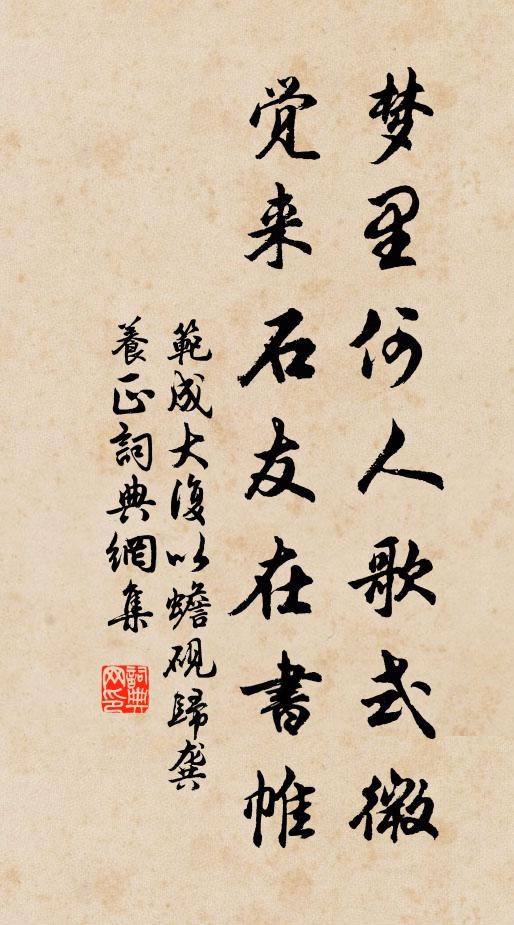 梦里何人歌式微
觉来石友在書帷
範成大復以蟾砚歸龚
養正詞典網集
詞典
网印